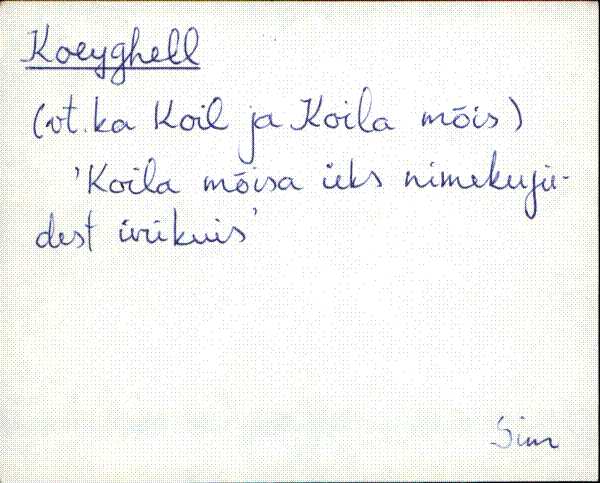 Koeyghell
(vt. ka Koil ja Koila mõis)
'Koila mõisa üks nimekuju-
dest ürikuis'
Sim